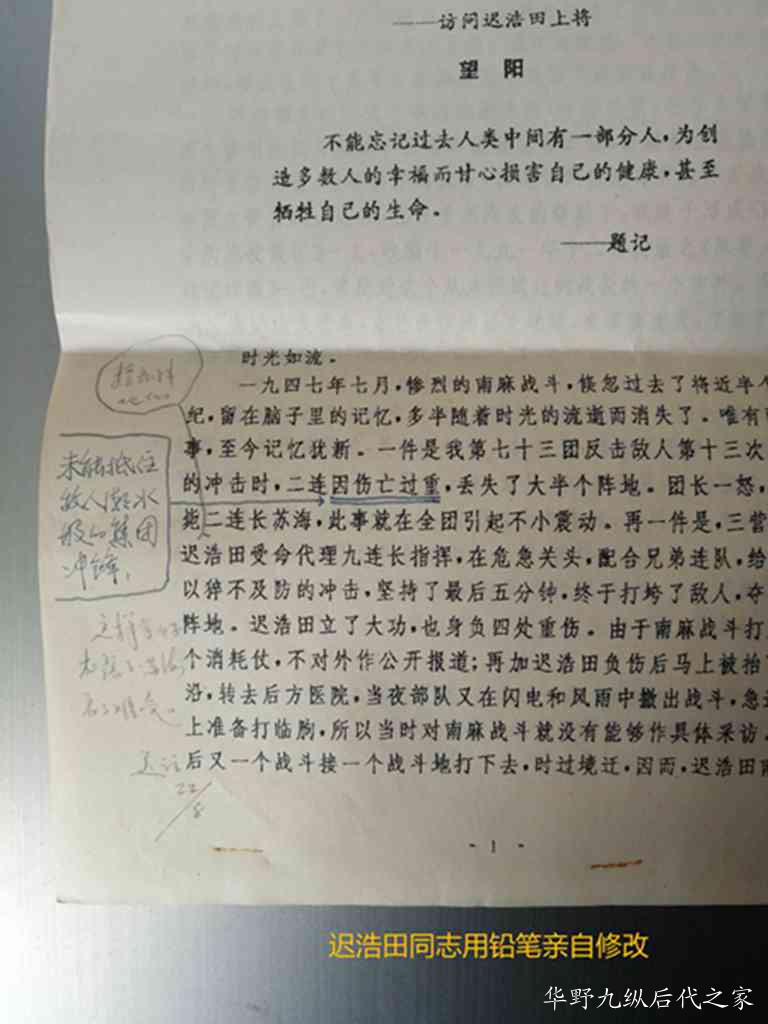 ——访问迟浩田上将
望 阳
不能忘记过去人类中间有一部分人，为创
造多数人的幸福而甘心损害自己的健康，甚至
牺牲自己的生命。
——题记
时光如流。
一九四七年七月，惨烈的南麻战斗，倏忽过去了将近半个
纪，留在脑子里的记忆，多半随着时光的流逝而消失了。唯有
事，至今记忆犹新。一件是我第七十三团反击敌人第十三次
的冲击时，二连因伤亡过重，丢失了大半个阵地。团长一怒，
毙二连长苏海，此事就在全团引起不小震动。再一件是，三营
迟浩田受命代理九连长指挥，在危急关头，配合兄弟连队，给
以猝不及防的冲击，坚持了最后五分钟，终于打垮了敌人，夺
阵地。迟浩田立了大功，也身负四处重伤。由于南麻战斗打
个消耗仗，不对外作公开报道；再加迟浩田负伤后马上被抬
沿，转去后方医院，当夜部队又在闪电和风雨中撤出战斗，急
上准备打临朐，所以当时对南麻战斗就没有能够作具体采访。
后又一个战斗接一个战斗地打下去，时过境迁，因而，迟浩田南
未能抵住
敌人潮水
般的集团
冲锋，
22/8
- 1 -
迟浩田同志用铅笔亲自修改
华野九纵后代之家